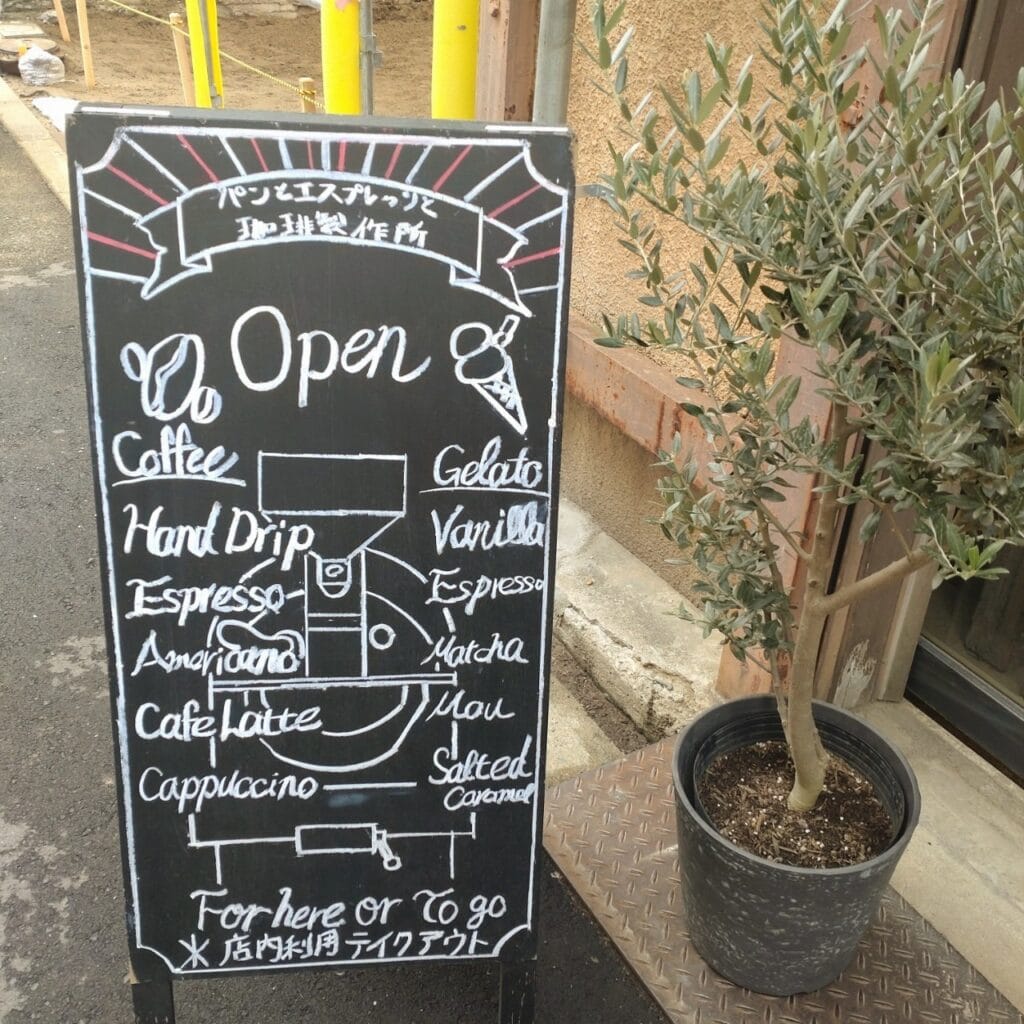 パンとエスプレッソと
珈琲製作所
Open
Coffee
Hand Drip
Espresso
Americano
Cafe Latte
Cappuccino
Gelato
Vanilla
Espresso
Matcha
Mou
Salted
Caramel
For here or To go
＊店内利用 テイクアウト